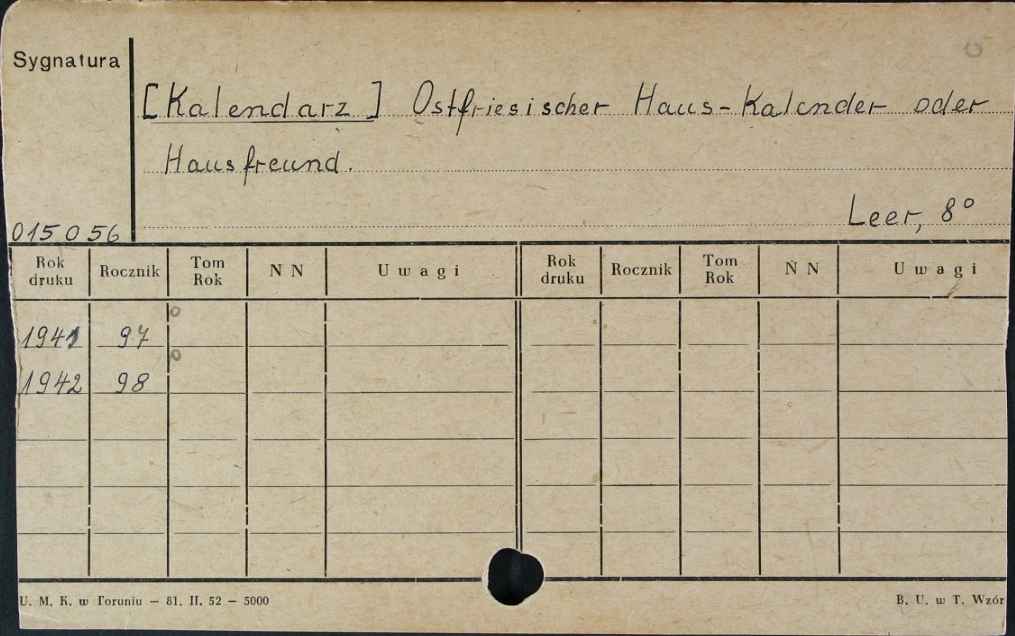 Sygnatura
[Kalendarz] Ostfriesischer Haus-Kalender oder
Hausfreund.
Leer, 8°
015056
Rok druku Rocznik Tom Rok N N Uwagi Rok druku Rocznik Tom Rok N N Uwagi
1941 97
1942 98
U. M. K. w Toruniu — 81. II. 52 — 5000 B. U. w T. Wzór